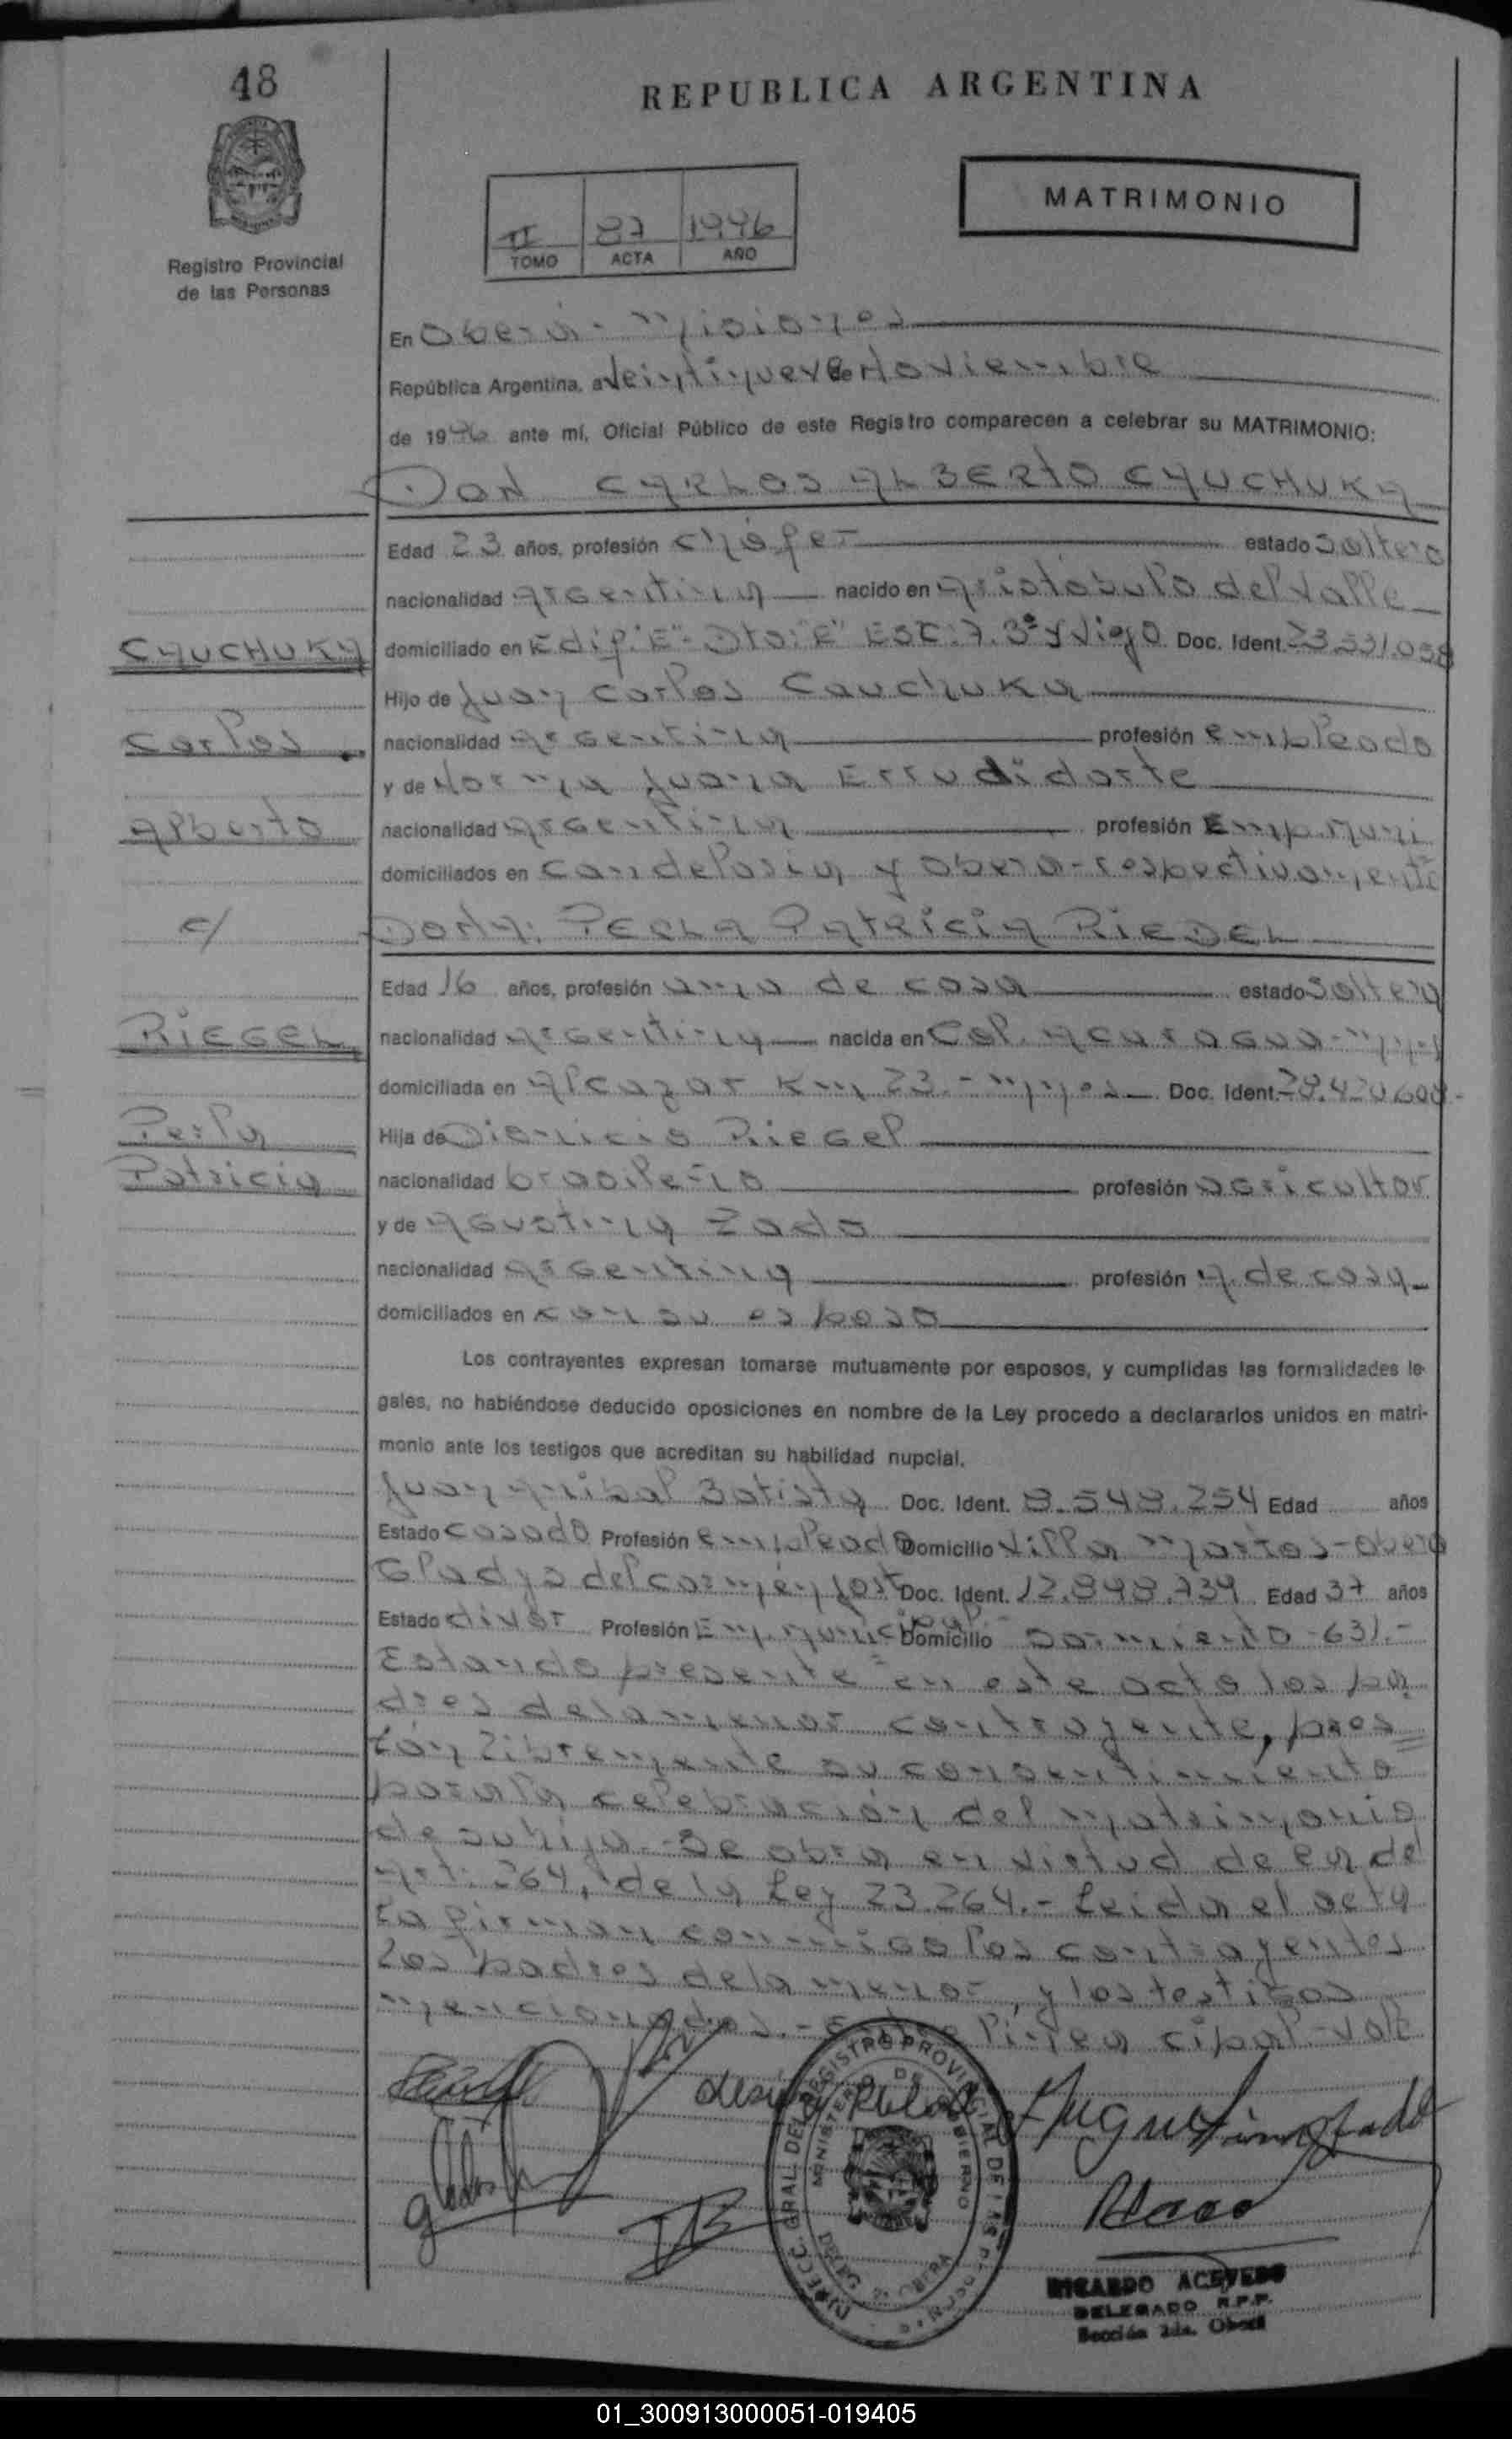 48
REPUBLICA ARGENTINA
MATRIMONIO
II 87 1996
TOMO ACTA AÑO
Registro Provincial
de las Personas
En Oberá - Misiones
República Argentina, a Veintinueve de Noviembre
de 1996 ante mí, Oficial Público de este Registro comparecen a celebrar su MATRIMONIO:
DON CARLOS ALBERTO CAUCHUKA
Edad 23 años, profesión chófer estado Soltero
nacionalidad Argentina nacido en Aristóbulo del Valle
CAUCHUKA
domiciliado en Edif. "E" - Dto: "E" ESC: 7. 3º y Viejo Doc. Ident. 23.531.058
Hijo de Juan Carlos Cauchuka
Carlos
nacionalidad Argentina profesión empleado
y de Norma Juana Errudidarte
Alberto
nacionalidad Argentina profesión Emp. Muni
domiciliados en Candelaria y Oberá - respectivamente
c/
DOÑA: PERLA PATRICIA RIEGEL
Edad 16 años, profesión ama de casa estado Soltera
RIEGEL
nacionalidad Argentina nacida en Col. Acaragua - Mnes
domiciliada en Alcazar Km 23. - Mnes Doc. Ident. 28.420.608 -
Perla
Hija de Dionicio Riegel
Patricia
nacionalidad brasileño profesión agricultor
y de Agustina Zado
nacionalidad Argentina profesión A. de casa
domiciliados en con su esposo
Los contrayentes expresan tomarse mutuamente por esposos, y cumplidas las formalidades le-
gales, no habiéndose deducido oposiciones en nombre de la Ley procedo a declararlos unidos en matri-
monio ante los testigos que acreditan su habilidad nupcial.
Juan Anibal Batista Doc. Ident. 8.548.254 Edad años
Estado casado Profesión empleado Domicilio Villa Martos - Oberá
Gladys del carmen Jost Doc. Ident. 12.848.739 Edad 37 años
Estado divor Profesión Emp. Municipal Domicilio Sarmiento - 631. -
Estando presente en este acto los pa
dres de la menor contrayente, pres
tan libremente su consentimiento
para la celebración del matrimonio
de su hija. - Se obra en virtud de lo del
Art: 264, de la Ley 23.264. - Leida el acta
la firman conmigo los contrayentes
Los padres de la menor, y los testigos
mencionados. - Entre línea cipal - Vale
DIRECC. GRAL. DEL REGISTRO PROVINCIAL DE LAS PERSONAS
MINISTERIO DE GOBIERNO
OBERA
RICARDO ACEVEDO
DELEGADO R.P.P.
Sección 2da. Oberá
01_300913000051-019405